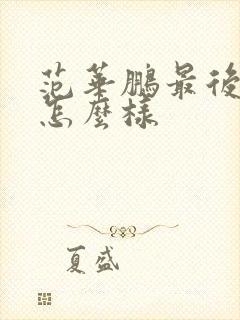 范華鵬最後
怎麼樣
夏盛